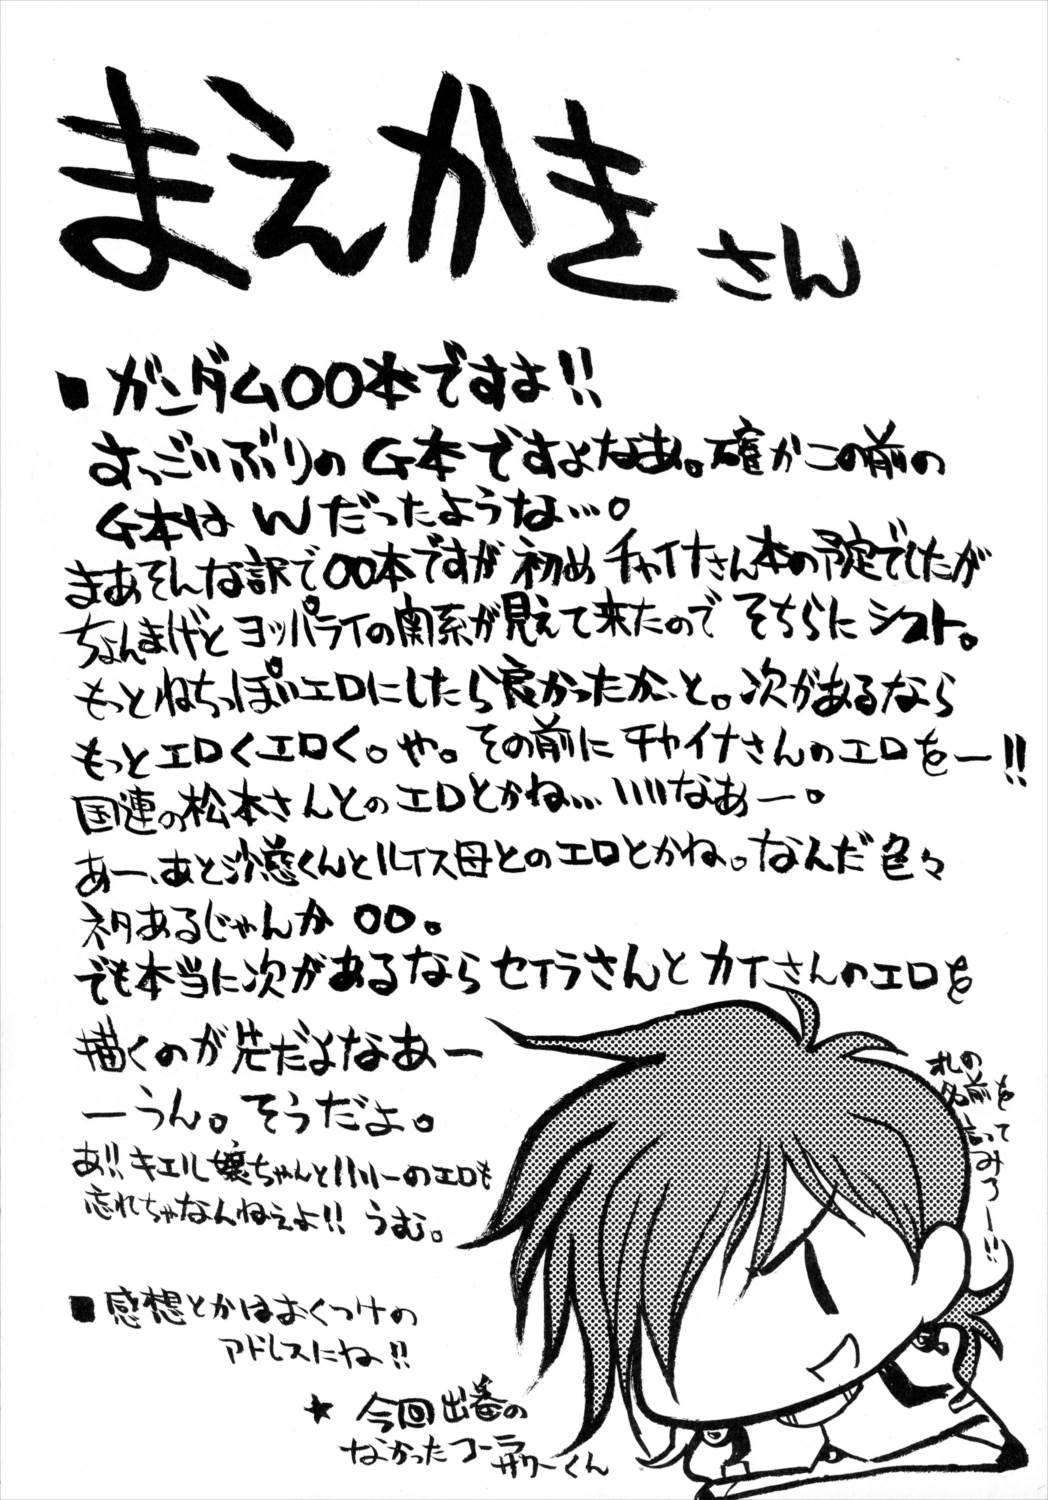 まえかきさん
■ ガンダム00本ですよ!!
すっごいぶりのG本ですよなあ。確かこの前の
G本はWだったような…。
まあそんな訳で00本ですが初めチャイナさん本の予定でしたが
ちょんまげとヨッパライの関系が見えて来たのでそちらにシフト。
もっとねちっぽいエロにしたら良かったかと。次があるなら
もっとエロくエロく。や。その前にチャイナさんのエロをー!!
国連の松本さんとのエロとかね…いいなあー。
あー、あと沙慈くんとルイス母とのエロとかね。なんだ色々
ネタあるじゃんか00。
でも本当に次があるならセイラさんとカイさんのエロを
描くのが先だよなあー
ーうん。そうだよ。
あ!!キエル嬢ちゃんとハリーのエロも
忘れちゃなんねえよ!!うむ。
■ 感想とかはおくつけの
アドレスにね!!
★ 今回出番の
なかったコーラ
サワーくん
オレの
名前を
言って
みろー!!